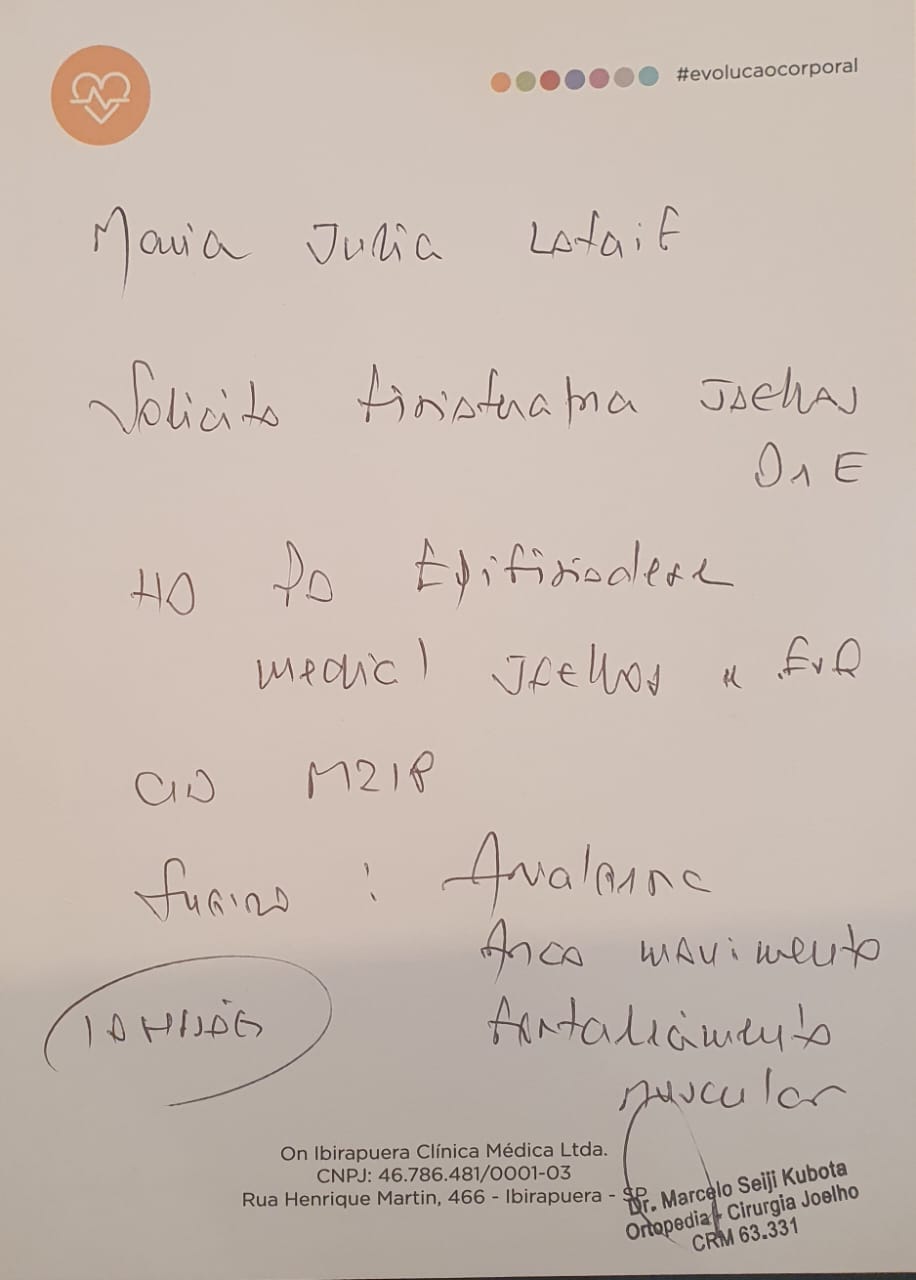 #evolucaocorporal
Maria Julia Lafaif
Solicito fisioterapia Joelhos
D + E
HD PO Epifisiodese
medial Joelhos
CID M218
Analgesia
Arco movimento
fortalecimento
muscular
10 sessões
On Ibirapuera Clínica Médica Ltda.
CNPJ: 46.786.481/0001-03
Rua Henrique Martin, 466 - Ibirapuera - SP
Dr. Marcelo Seiji Kubota
Ortopedia - Cirurgia Joelho
CRM 63.331